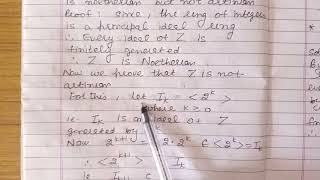 is noetherian but not artinian
Proof : since, the ring of integers
is a principal ideal ring
∴ Every ideal of Z is
finitely generated
∴ Z is Noetherian.
Now we prove that Z is not
artinian
For this, let I_k = <2^k>
where k ≥ 0
i.e. I_k is an ideal of Z
generated by 2^k
Now 2^{k+1} = 2·2^k ∈ <2^k> = I_k
∴ <2^{k+1}> ⊂ I_k